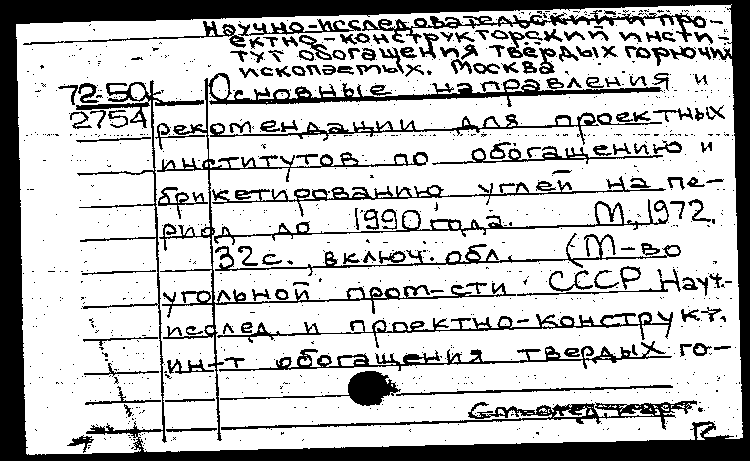 Научно-исследовательский и про-
ектно-конструкторский инсти-
тут обогащения твердых горючих
ископаемых. Москва.
72-50к Основные направления и
2754 рекомендации для проектных
институтов по обогащению и
брикетированию углей на пе-
риод до 1990 года. М., 1972.
32с., включ. обл. (М-во
угольной пром-сти СССР Науч.-
исслед. и проектно-конструкт.
ин-т обогащения твердых го-
См. след. карт.